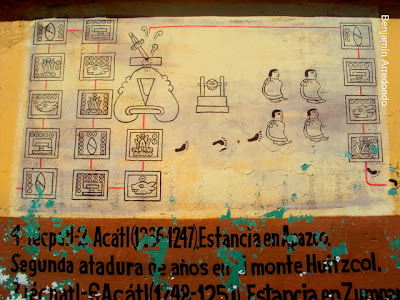 Benjamín Arredondo
4 Tecpatl-2. Acátl(1236-1247),Estancia en Apazco.
Segunda atadura de años en el monte Huitzcol.
Acátl(1248-125 Estancia en Zumpan